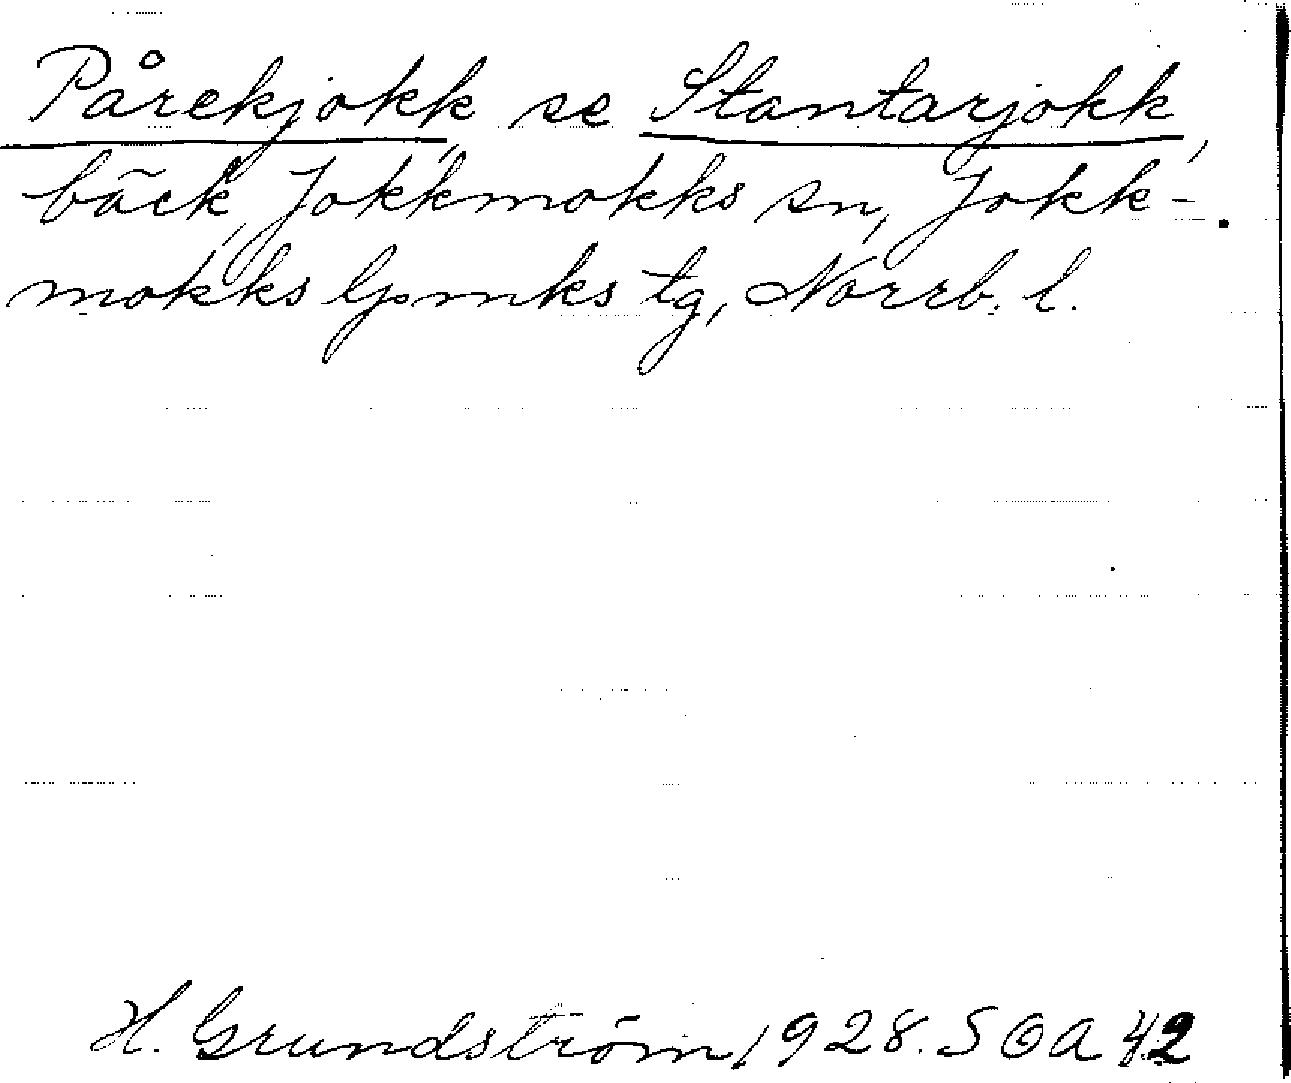 Pårekjokk, se Stantarjokk,
bäck, Jokkmokks sn, Jokk-
mokks lpmks tg, Norrb. l.
H. Grundström, 1928. SOA 42